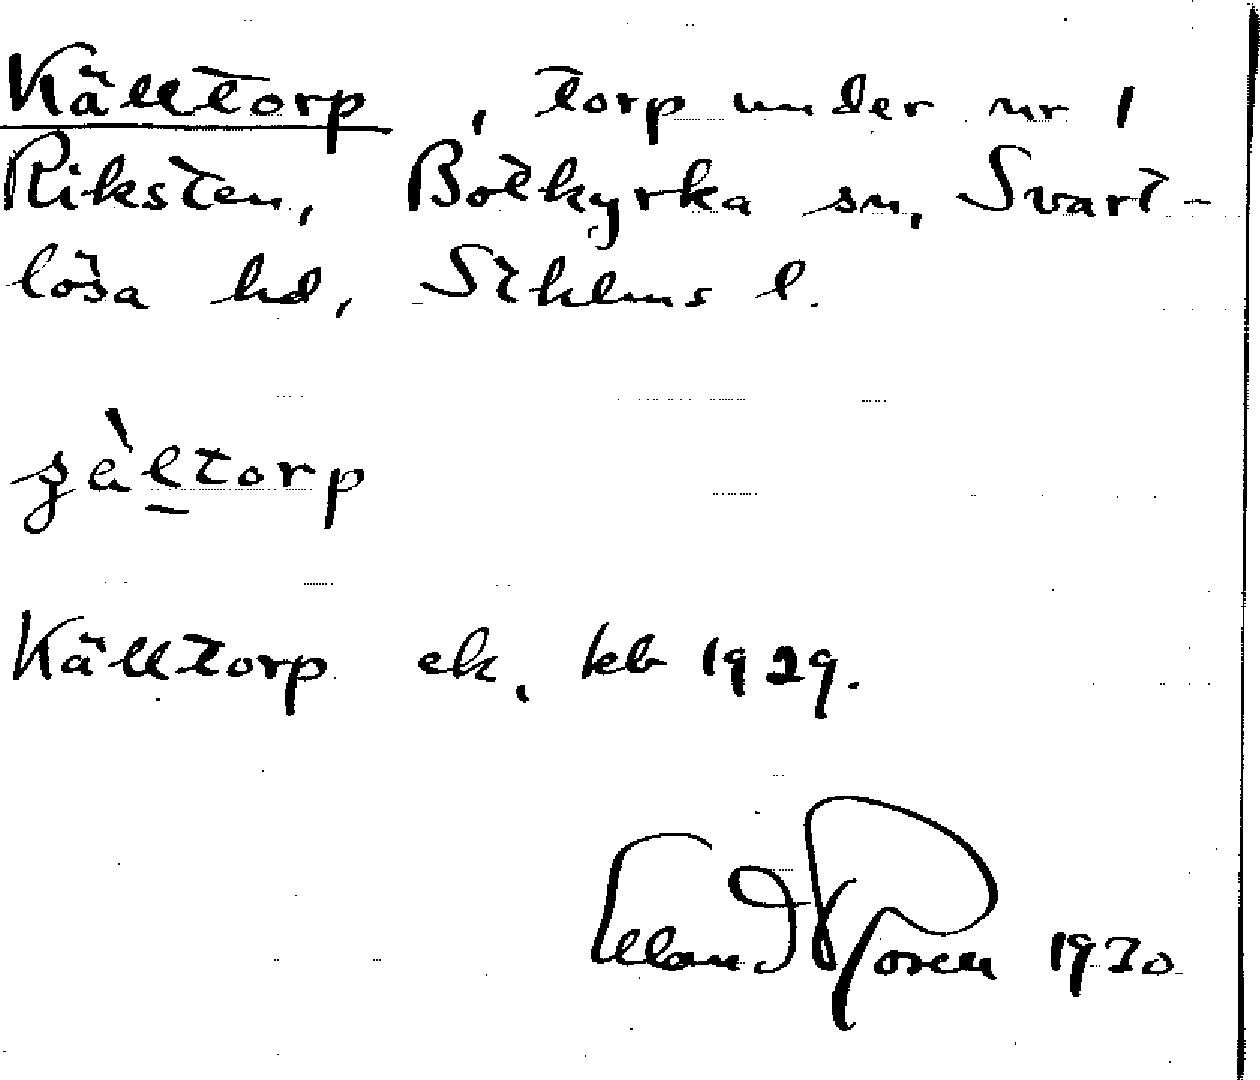 Källtorp, torp under nr 1
Riksten, Botkyrka sn, Svart-
lösa hd, Sthlms l.
šàltorp
Källtorp ek. kb 1929.
Elland Rosen 1930